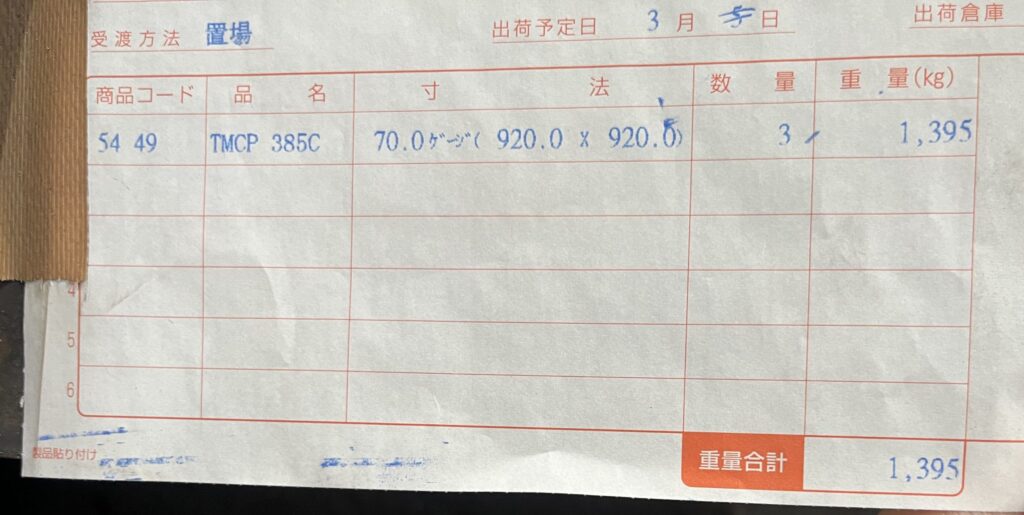 受渡方法 置場 出荷予定日 3月 5日 出荷倉庫
商品コード 品名 寸法 数量 重量(kg)
54 49 TMCP 385C 70.0ゲージ( 920.0 X 920.0) 3 1,395
4
5
6
製品貼り付け 重量合計 1,395